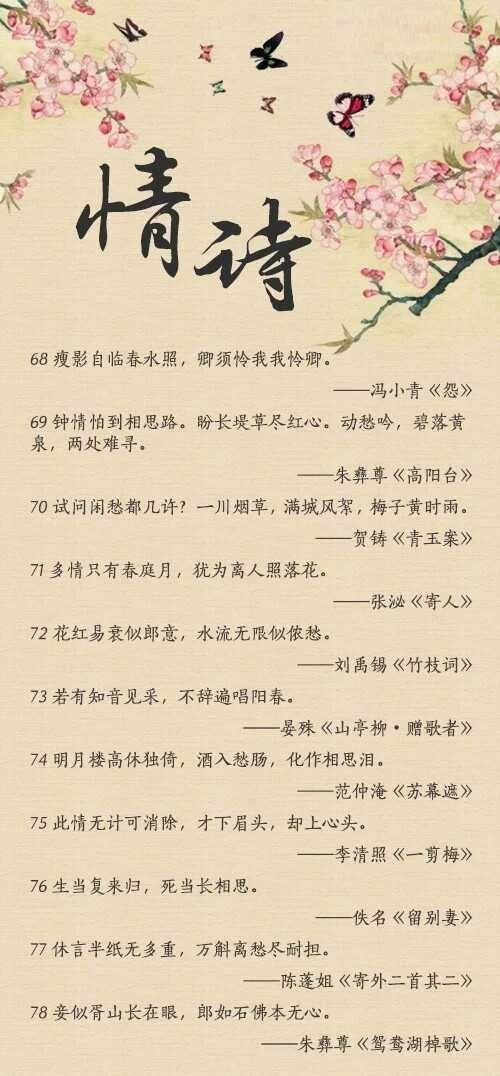 情诗
68 瘦影自临春水照，卿须怜我我怜卿。
——冯小青《怨》
69 钟情怕到相思路。盼长堤草尽红心。动愁吟，碧落黄
泉，两处难寻。
——朱彝尊《高阳台》
70 试问闲愁都几许？一川烟草，满城风絮，梅子黄时雨。
——贺铸《青玉案》
71 多情只有春庭月，犹为离人照落花。
——张泌《寄人》
72 花红易衰似郎意，水流无限似侬愁。
——刘禹锡《竹枝词》
73 若有知音见采，不辞遍唱阳春。
——晏殊《山亭柳·赠歌者》
74 明月楼高休独倚，酒入愁肠，化作相思泪。
——范仲淹《苏幕遮》
75 此情无计可消除，才下眉头，却上心头。
——李清照《一剪梅》
76 生当复来归，死当长相思。
——佚名《留别妻》
77 休言半纸无多重，万斛离愁尽耐担。
——陈蓬姐《寄外二首其二》
78 妾似胥山长在眼，郎如石佛本无心。
——朱彝尊《鸳鸯湖棹歌》